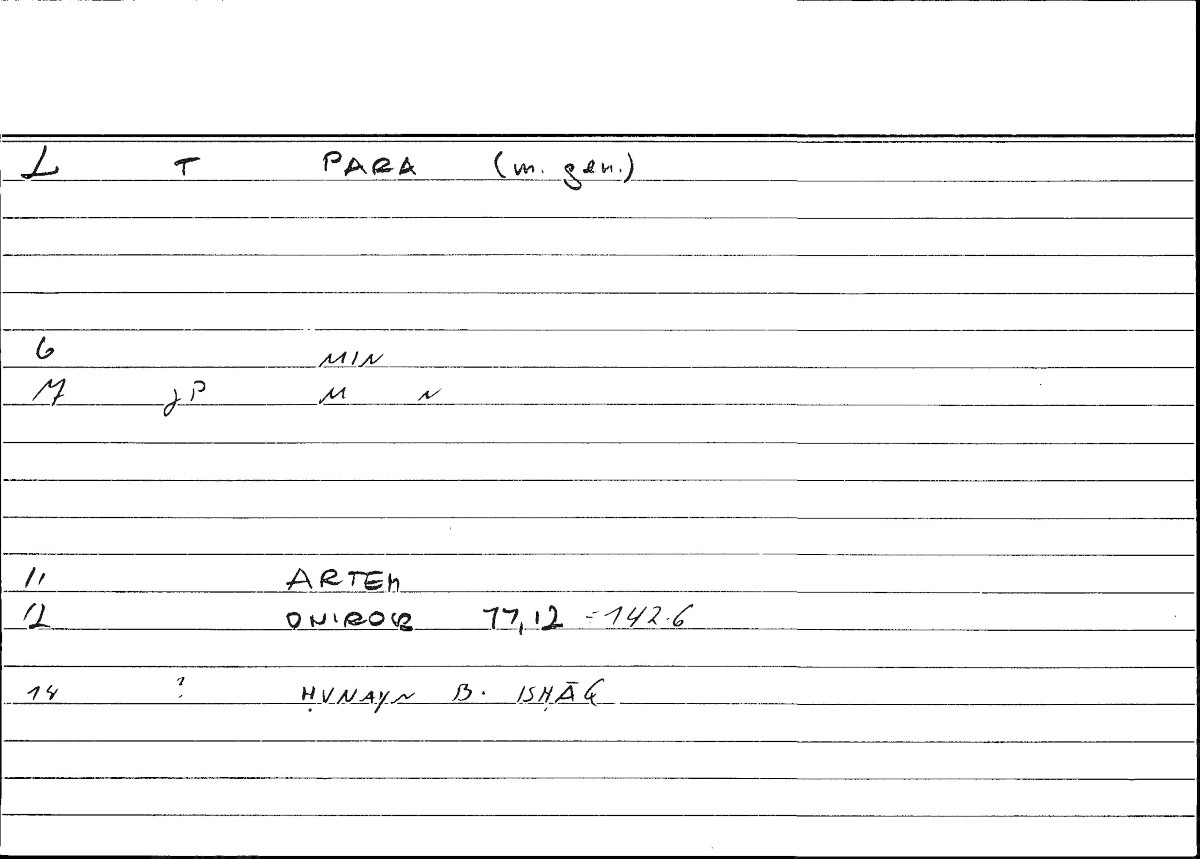 L T PARA (m. gen.)
6 MIN
M N
11 ARTEM
12 ONIROK 77,12 = 142.6
14 ? ḤUNAYN B. ISḤĀQ